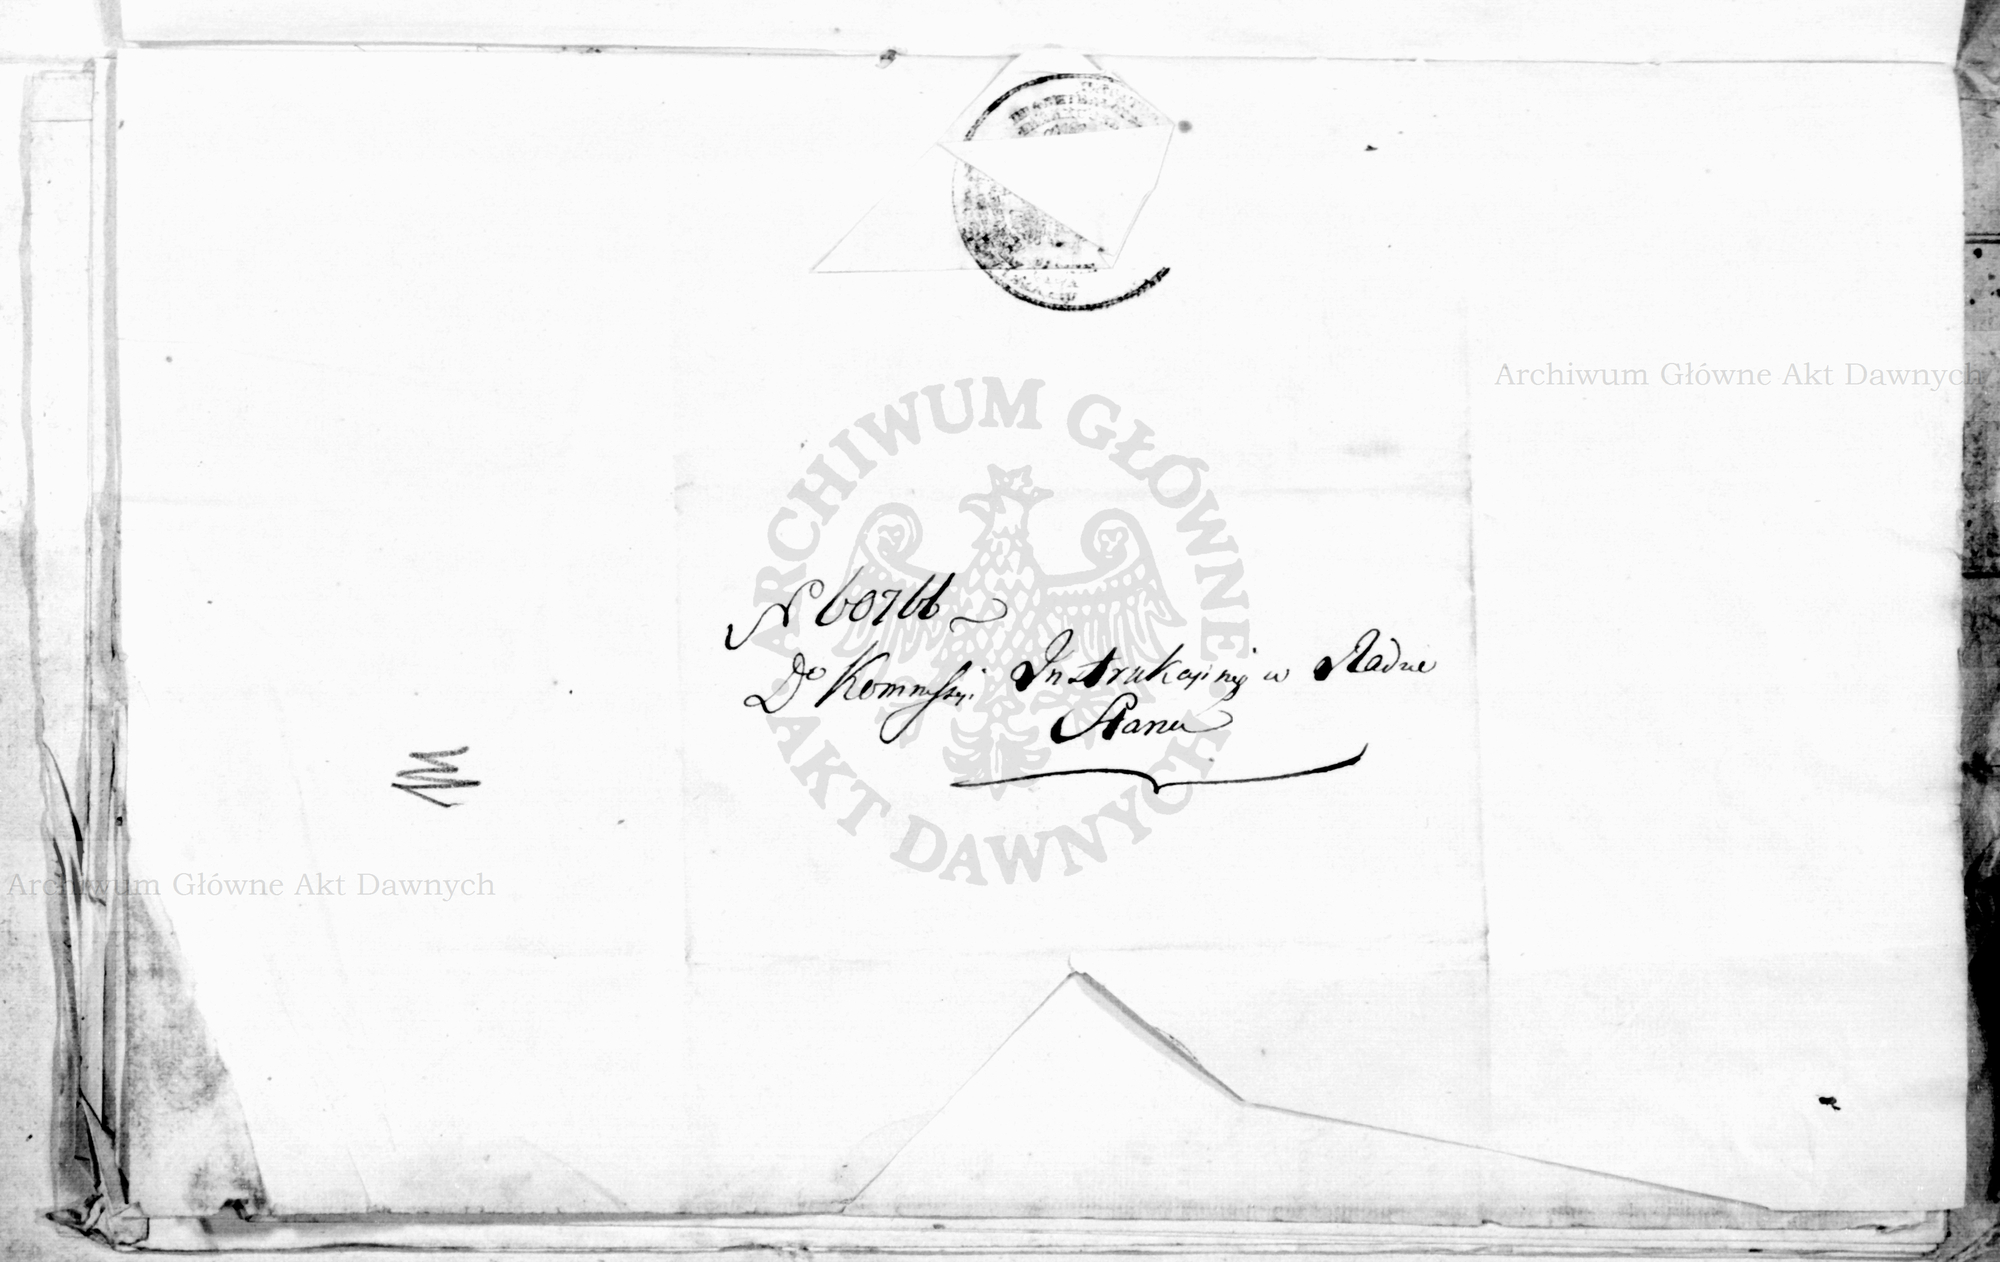 Archiwum Główne Akt Dawnych
ARCHIWUM GŁÓWNE AKT DAWNYCH
N 60766
Do Kommissyi Instrukcyiney w Radzie
Stanu
Archiwum Główne Akt Dawnych